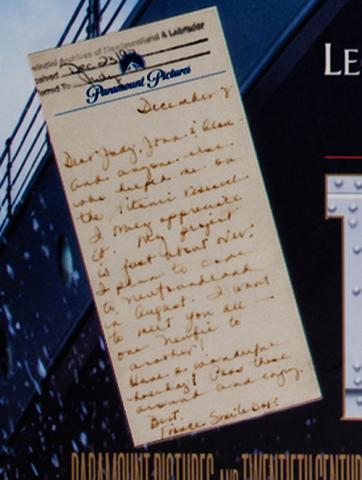 Provincial Archives of Newfoundland & Labrador
Received Dec 23/97
Referred To Judy
Paramount Pictures
December 8
Dear Judy, Joan & Alan –
and anyone else
who helped me on
the Titanic research
I sooo appreciate
it. My project
is just about over.
I plan to come
to Newfoundland
in August. I want
to meet you all –
one Newfie to
another!
Have a wonderful
holiday! Pass these
around and enjoy.
Best,
LE
PARAMOUNT PICTURES AND TWENTIETH CENTUR